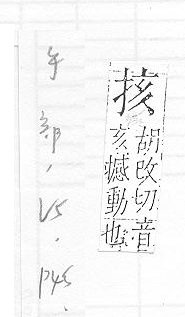 㧡
胡改切音
亥撼動也
手部, 15. P45.